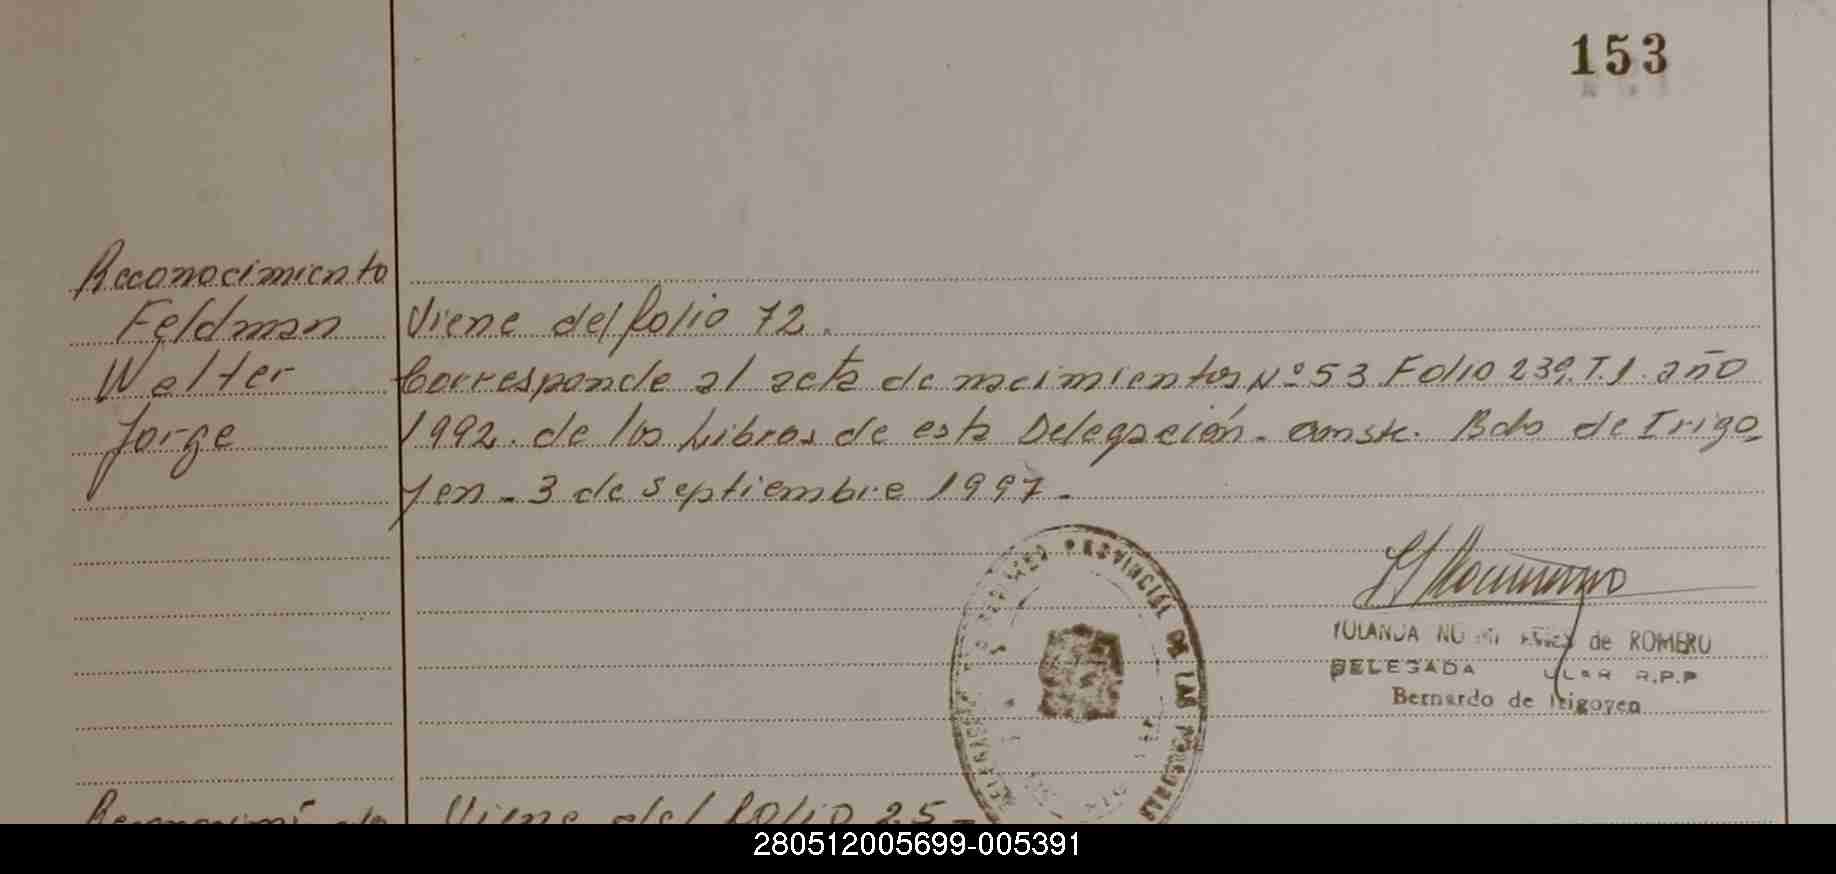 153
Reconocimiento
Feldman
Welter
Jorge
Viene del folio 72.
Corresponde al acta de nacimientos Nº 53 Folio 239. T.I. año
1992. de los Libros de esta Delegación. const. Bdo de Irigo
yen - 3 de septiembre 1997.
PROVINCIAL DE LAS PERSONAS
YOLANDA de ROMERO
DELEGADA R.P.P
Bernardo de Irigoyen
Viene del folio 25 -
280512005699-005391